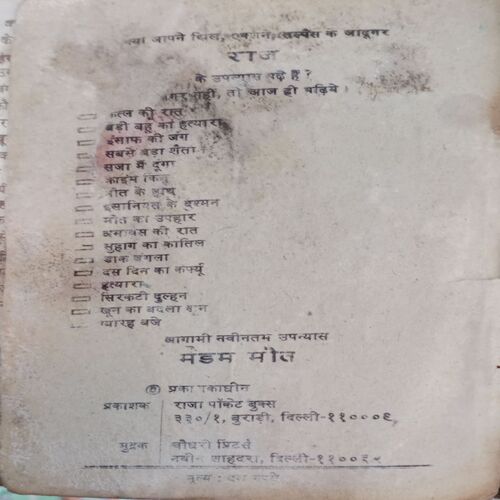 क्या आपने थ्रिल, एक्शन, सस्पेंस के जादूगर
राज
के उपन्यास पढ़े हैं ?
अगर नहीं, तो आज ही पढ़िये ।
कत्ल की रात
बड़ी बहू का हत्यारा
इंसाफ की जंग
सबसे बड़ा शैतान
सजा मैं दूंगा
क्राईम किंग
मौत के
इंसानियत के दुश्मन
मौत का उपहार
अमावस की रात
सुहाग का कातिल
डाक बंगला
दस दिन का कर्फ्यू
हत्यारा
सिरकटी दुल्हन
खून का बदला खून
ग्यारह बजे
आगामी नवीनतम उपन्यास
मैडम मौत
© प्रकाशकाधीन
प्रकाशक राजा पॉकेट बुक्स
३३०/१, बुराड़ी, दिल्ली-११०००९
मुद्रक चौधरी प्रिंटर्स
नवीन शाहदरा, दिल्ली-११००३२
मूल्य : दस रुपये